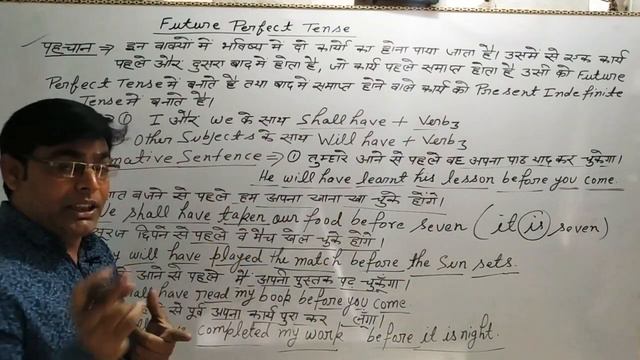 Future Perfect Tense
पहचान ⇒ इन वाक्यों में भविष्य में दो कार्यों का होना पाया जाता है। उसमें से एक कार्य
पहले और दुसरा बाद में होता है, जो कार्य पहले समाप्त होता है उसी को Future
Perfect Tense में बनाते हैं तथा बाद में समाप्त होने वाले कार्य को Present Indefinite
Tense में बनाते हैं।
① I और We के साथ Shall have + Verb3
Other Subjects के साथ Will have + Verb3
Sentence ⇒ ① तुम्हारे आने से पहले वह अपना पाठ याद कर चुकेगा।
He will have learnt his lesson before you come.
बजने से पहले हम अपना खाना खा चुके होंगे।
shall have taken our food before seven (it is seven)
छिपने से पहले वे मैच खेल चुके होंगे।
will have played the match before the Sun sets.
आने से पहले मैं अपनी पुस्तक पढ़ चुकूँगा।
have read my boop before you come.
से पूर्व अपना कार्य पूरा कर लूँगा।
completed my work before it is night.